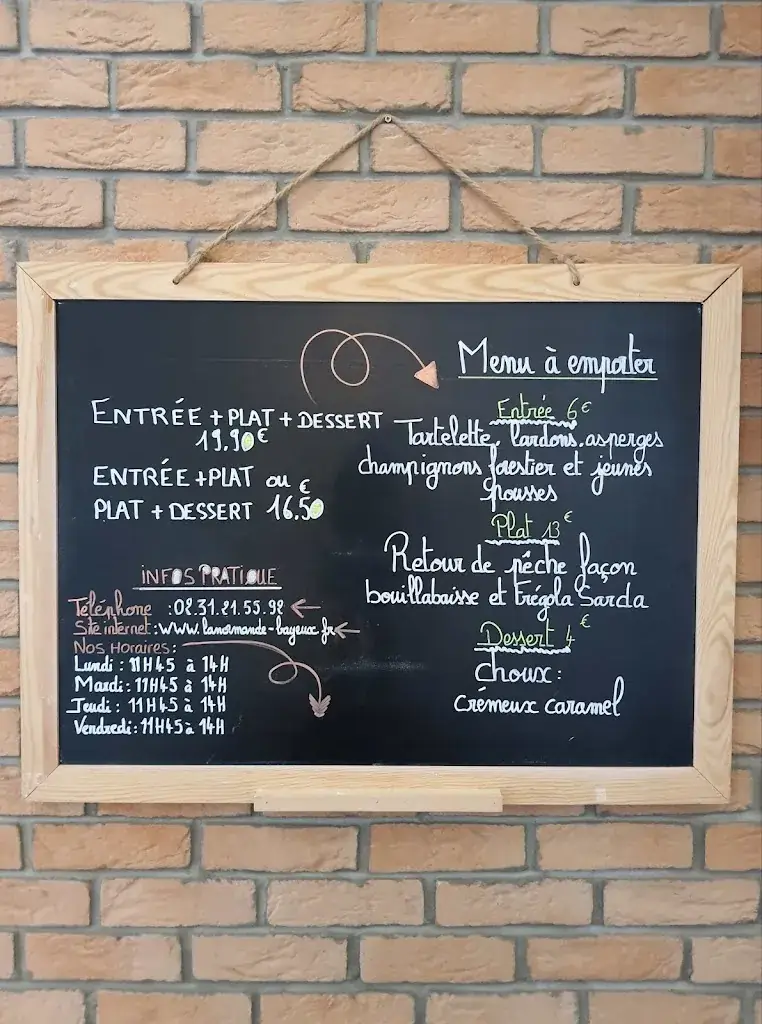 ENTRÉE + PLAT + DESSERT
19.90€
ENTRÉE + PLAT ou
PLAT + DESSERT 16.50€
INFOS PRATIQUE
Téléphone : 02.31.21.55.98
Site internet : www.lanormande-bayeux.fr
Nos Horaires :
Lundi : 11H45 à 14H
Mardi : 11H45 à 14H
Jeudi : 11H45 à 14H
Vendredi : 11H45 à 14H
Menu à emporter
Entrée 6€
Tartelette, lardons, asperges
champignons forestier et jeunes
pousses
Plat 13€
Retour de pêche façon
bouillabaisse et trégola Sarda
Dessert 4€
choux :
crémeux caramel